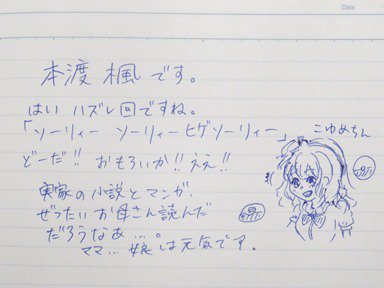 Date
本渡 楓 です。
はい ハズレ回ですね。
「ソーリィー ソーリィーヒゲソーリィー」
こゆめちん
どーだ!! おもろいか!! ええ!!
実家の小説とマンガ、
ぜったいお母さん読んだ
だろうなあ…。
ママ… 娘は元気です。